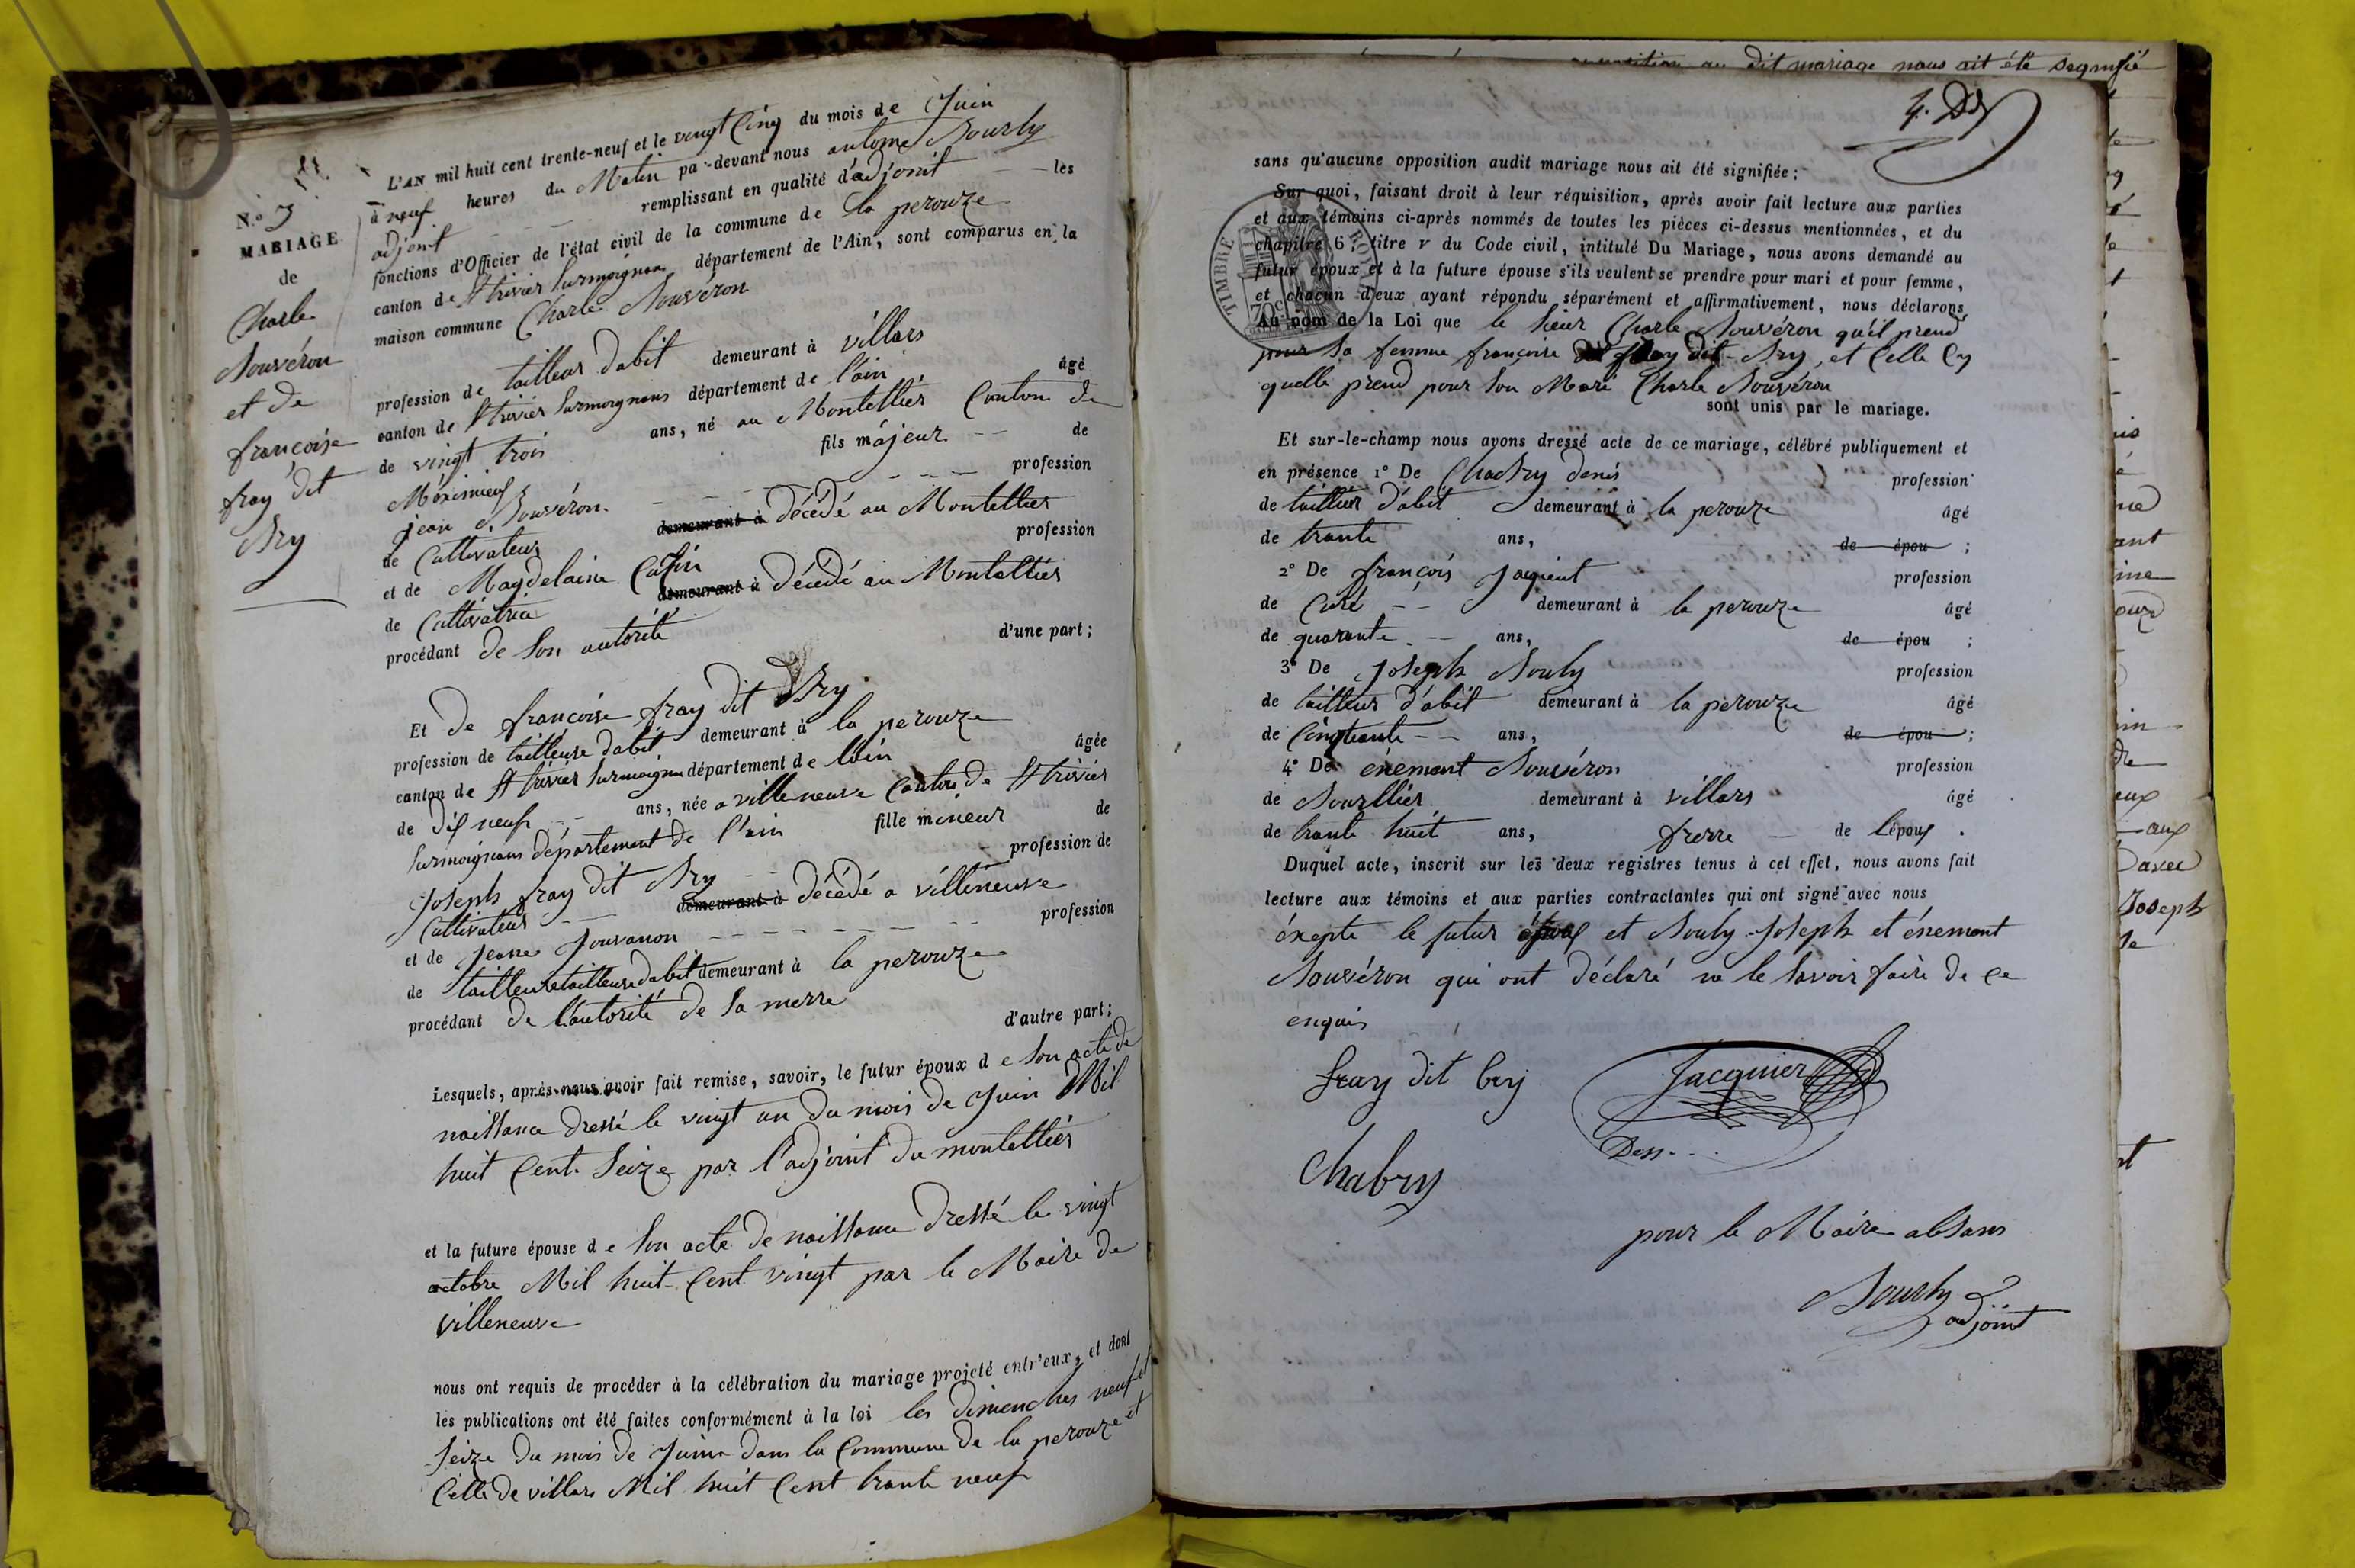 N.o 3
MARIAGE
de
Charle
Souvéron
et de
françoise
fray dit
Bry
L'AN mil huit cent trente-neuf et le vingt Cinq du mois de Juin
à neuf heures du Matin pa-devant nous antoine Sourly
adjoint remplissant en qualité d'adjoint les
fonctions d'Officier de l'état civil de la commune de la perouze
canton de St trivier Surmoignans département de l'Ain, sont comparus en la
maison commune Charle Souvéron
profession de tailleur dabit demeurant à villars
canton de St trivier Surmoignans département de l'ain, âgé
de vingt trois ans, né au Montellier Canton de
Méximieux fils majeur de
jean Souvéron profession
de Cultivateur demeurant à décédé au Montellier
et de Magdelaine profession
de Cultivatrice demeurant à décédé au Montellier
procédant de Son autorité d'une part;
Et De françoise fray dit Bry
profession de tailleuse dabit demeurant à la perouze
canton de St trivier Surmoignan département de l'ain âgée
de dix neuf ans, née a villeneuve Canton de St trivier
Surmoignans département de l'ain fille mineur de
Joseph fray dit Bry profession de
Cultivateur demeurant à décédé a villeneuve
et de Jeanne Jouvanon profession
de tailleure tailleuse dabit demeurant à la perouze
procédant de l'autorité de Sa merre
d'autre part;
Lesquels, après nous avoir fait remise, savoir, le futur époux d e Son acte de
naissance dressé le vingt un du mois de Juin Mil
huit Cent Seize par l'adjoint du montellier
et la future épouse d e Son acte de naissance dressé le vingt
octobre Mil huit Cent vingt par le Maire de
villeneuve
nous ont requis de procéder à la célébration du mariage projeté entr'eux, et dont
les publications ont été faites conformément à la loi les dimenches neuf et
Seize du mois de Juin dans la Commune de la perouze et
Celle de villars Mil huit Cent trante neuf
opposition au dit mariage nous ait été segnifié
sans qu'aucune opposition audit mariage nous ait été signifiée:
Sur quoi, faisant droit à leur réquisition, après avoir fait lecture aux parties
et aux témoins ci-après nommés de toutes les pièces ci-dessus mentionnées, et du
chapitre 6, titre v du Code civil, intitulé Du Mariage, nous avons demandé au
futur époux et à la future épouse s'ils veulent se prendre pour mari et pour femme,
et chacun d'eux ayant répondu séparément et affirmativement, nous déclarons,
TIMBRE ROYAL
Au nom de la Loi que le Sieur Charle Souvéron qu'il prend
pour Sa femme françoise fray dit Bry, et Celle Cy
quelle prend pour Son Mari Charle Souvéron
sont unis par le mariage.
Et sur-le-champ nous avons dressé acte de ce mariage, célébré publiquement et
en présence 1° De Chabry denis profession
de taillier d'abit demeurant à la perouze âgé
de trante ans, de épou ;
2° De françois Jaquient profession
de Curé demeurant à la perouze âgé
de quarante ans, de épou ;
3° De Joseph Souly profession
de tailleur d'abit demeurant à la perouze âgé
de Cinquante ans, de épou ;
4° De énemont Souvéron profession
de demeurant à villars âgé
de trante huit ans, frerre de l'époux .
Duquel acte, inscrit sur les deux registres tenus à cet effet, nous avons fait
lecture aux témoins et aux parties contractantes qui ont signé avec nous
éxepte le futur époux et Souly Joseph et énemont
Souvéron qui ont déclaré ne le Savoir faire de ce
enquis
fray dit bry
Jacquier
Dess.
Chabry
pour le Maire absans
Sourly
adjoint
Joseph